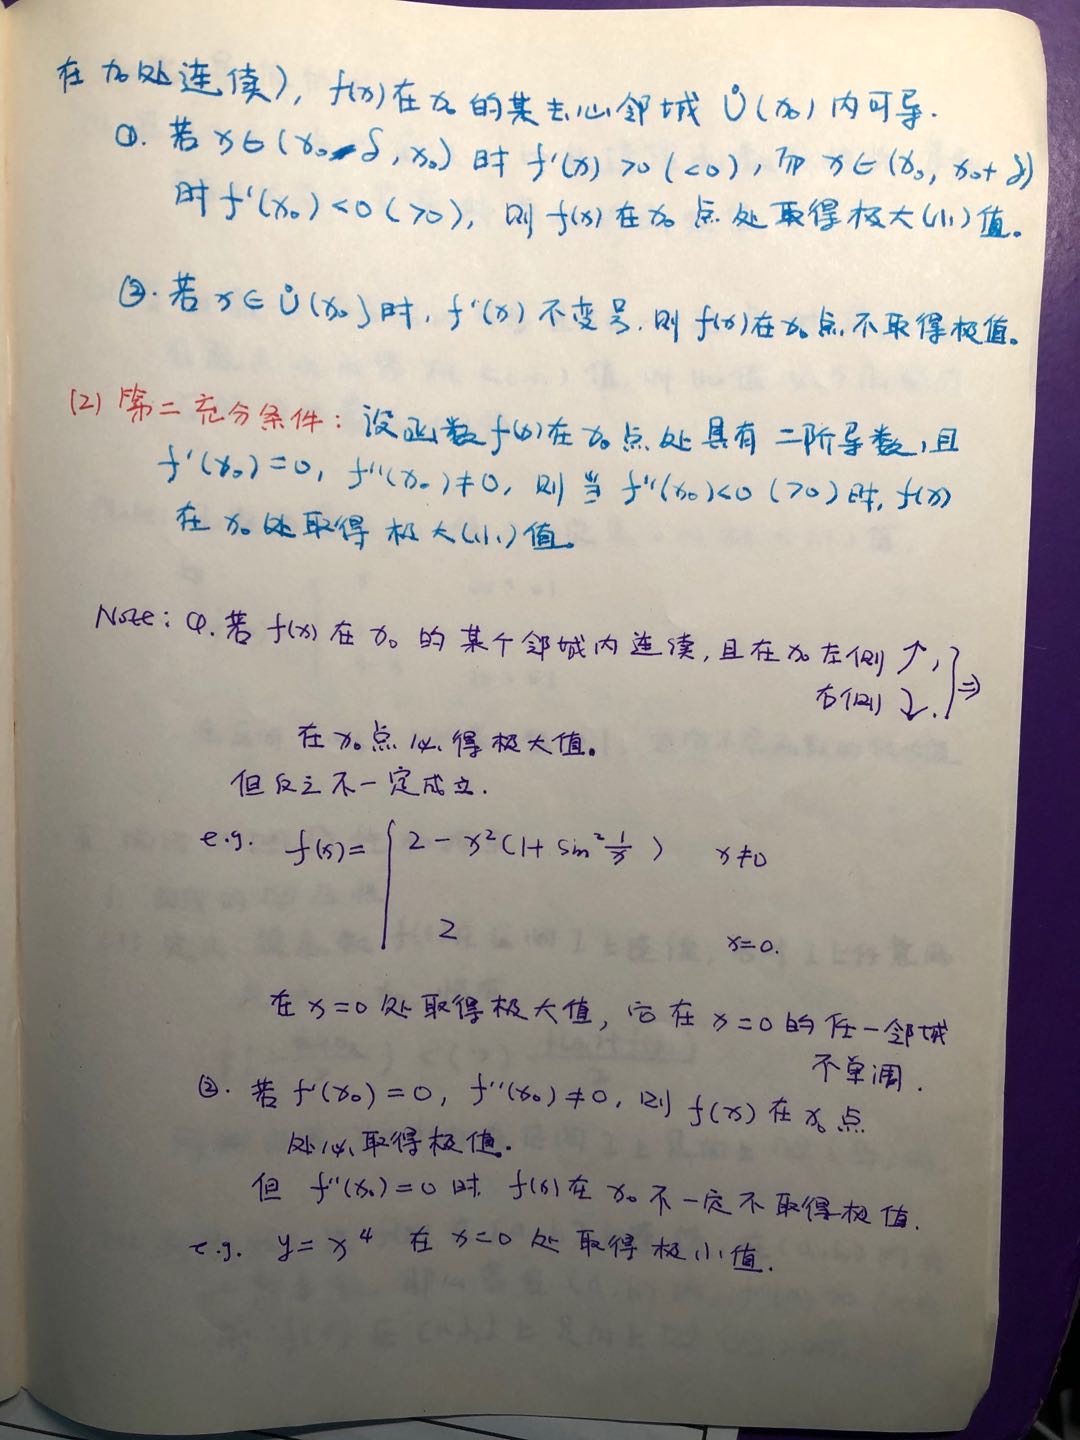 在x₀处连续), f(x)在x₀的某去心邻域 Ů(x₀)内可导.
①. 若 x∈(x₀-δ, x₀) 时 f'(x)>0(<0), 而 x∈(x₀, x₀+δ)
时f'(x₀)<0(>0), 则f(x)在x₀点处取得极大(小)值。
②. 若x∈Ů(x₀)时, f'(x)不变号, 则f(x)在x₀点不取得极值。
(2) 第二充分条件: 设函数f(x)在x₀点处具有二阶导数, 且
f'(x₀)=0, f''(x₀)≠0, 则当f''(x₀)<0(>0)时, f(x)
在x₀处取得极大(小)值。
Note: ①. 若f(x)在x₀的某个邻域内连续, 且在x₀左侧↗,
右侧↘. } ⇒
在x₀点必得极大值。
但反之不一定成立.
e.g. f(x)= { 2-x²(1+sin²1/x) x≠0
2 x=0.
在x=0处取得极大值, 它在x=0的任一邻域
不单调.
②. 若f'(x₀)=0, f''(x₀)≠0, 则f(x)在x₀点
处必取得极值.
但 f''(x₀)=0时 f(x)在x₀不一定不取得极值.
e.g. y=x⁴ 在x=0处取得极小值.